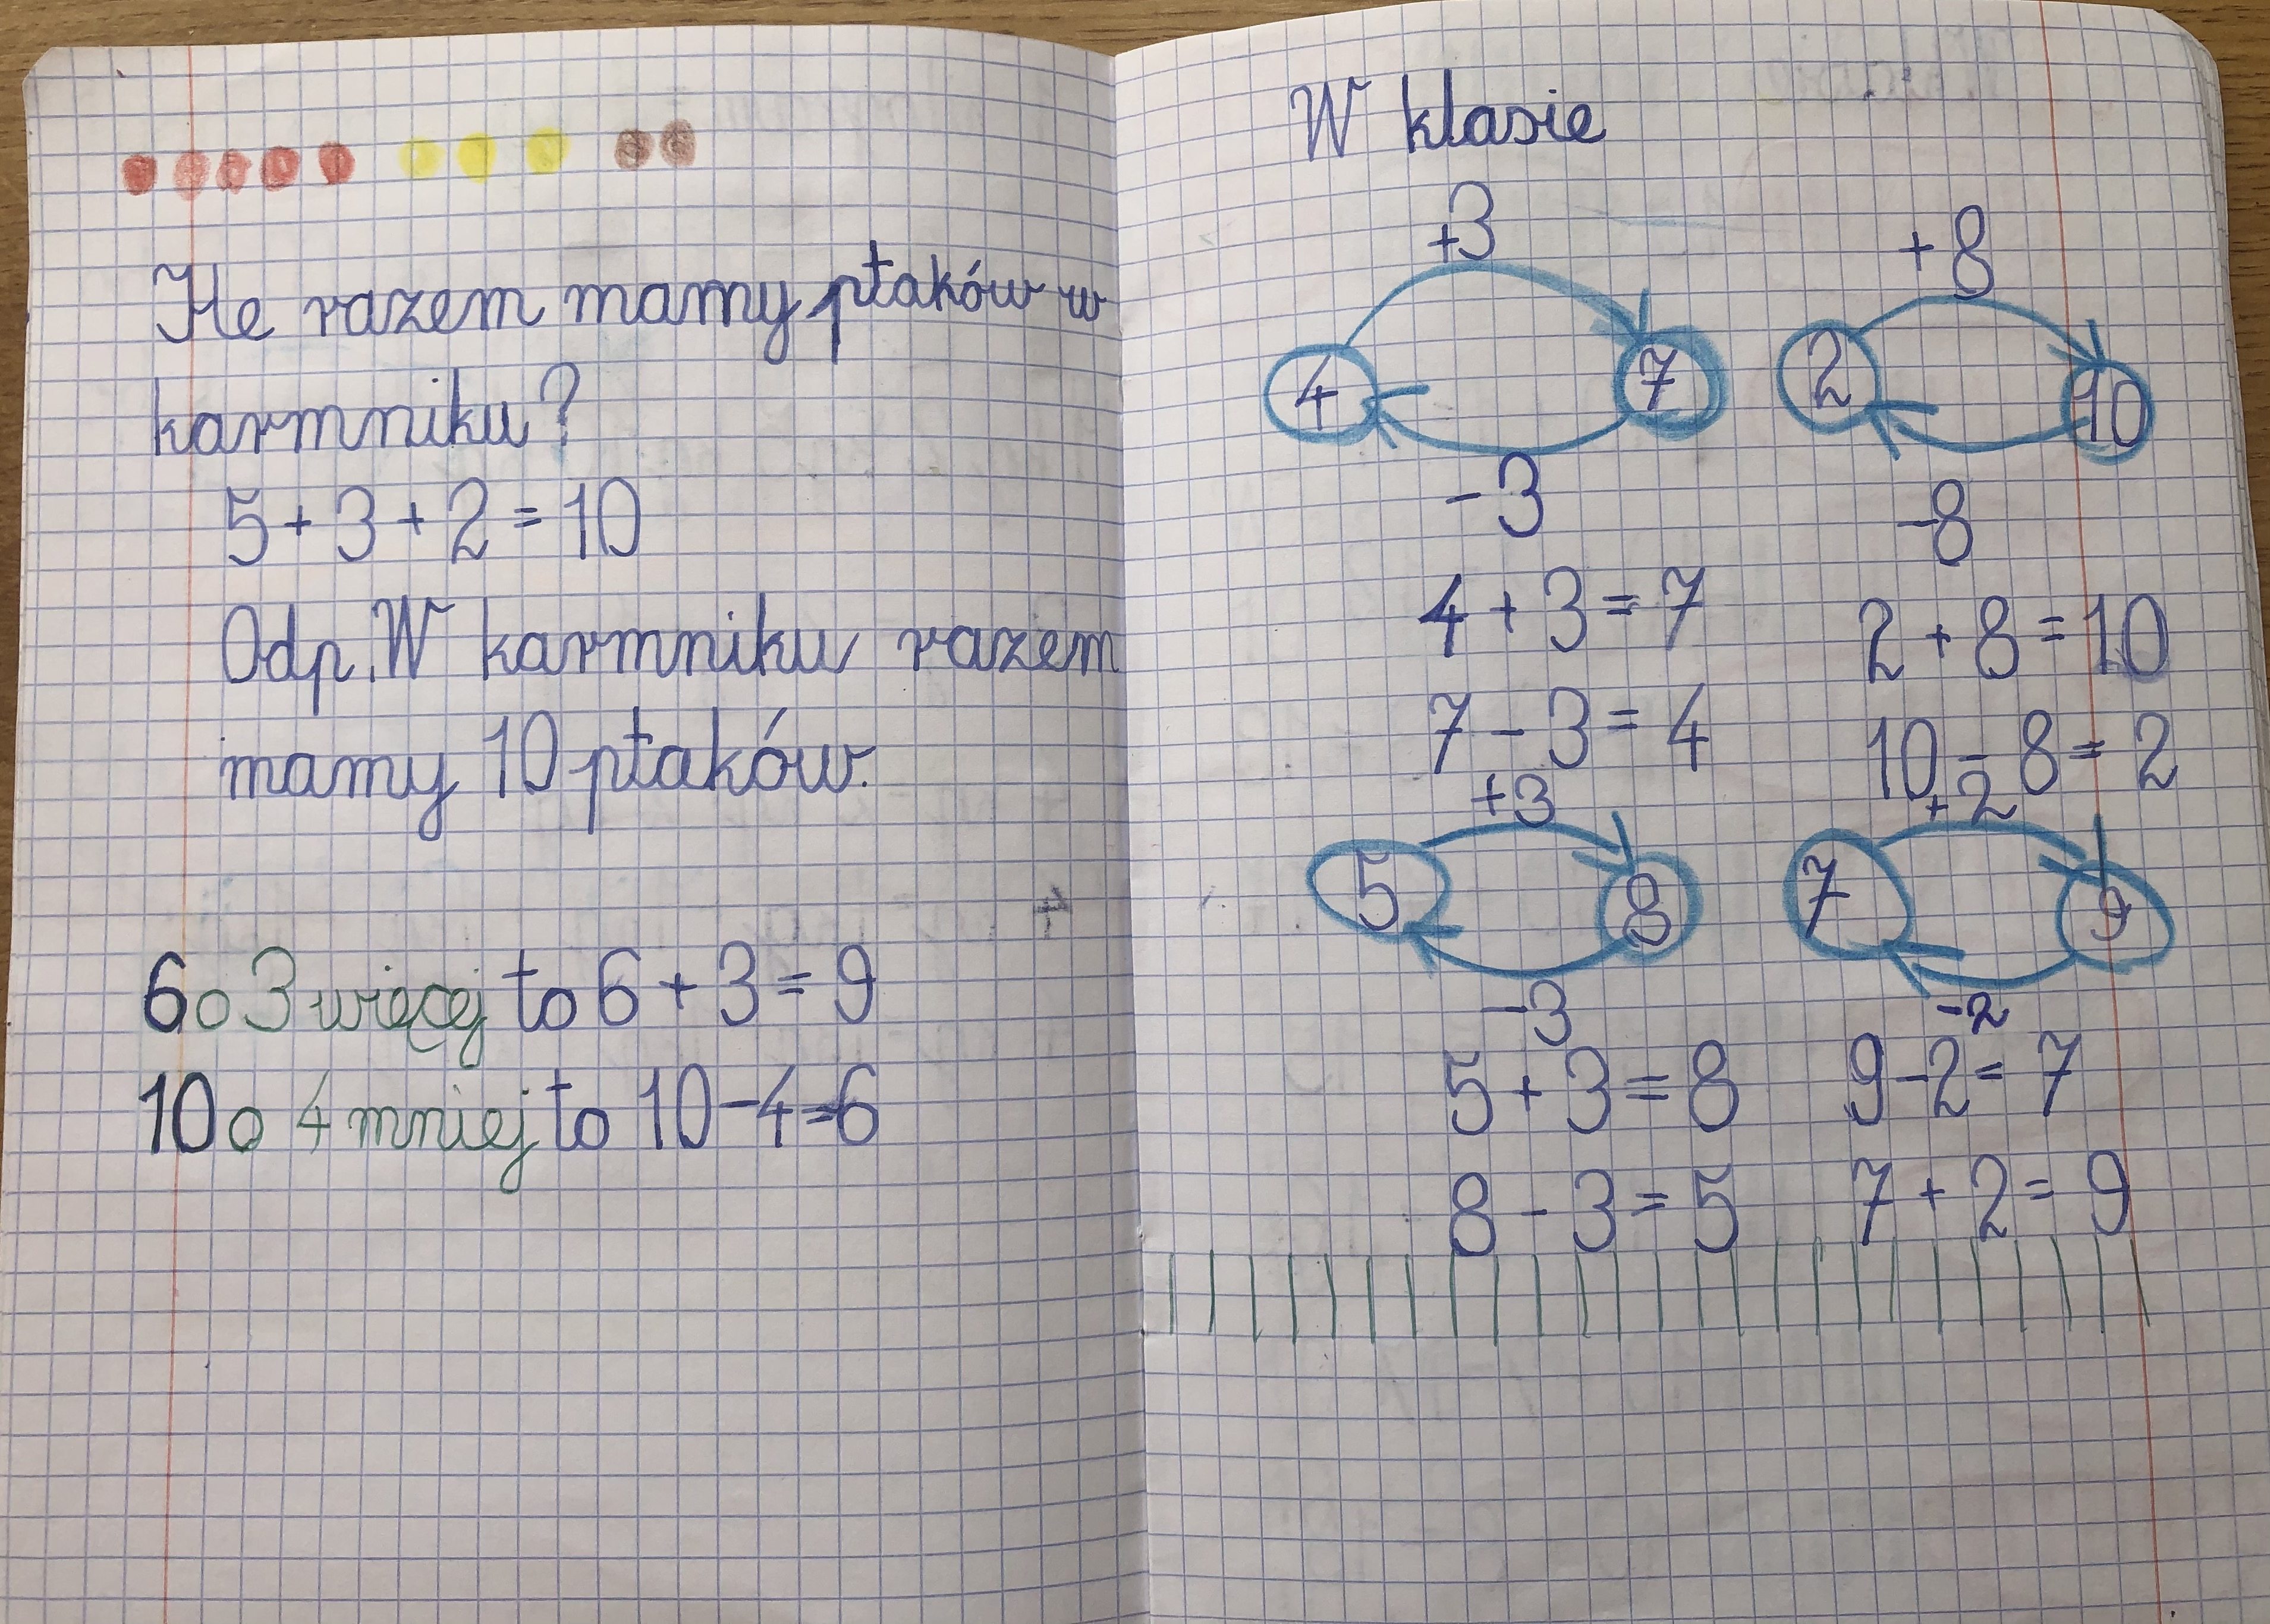 Ile razem mamy ptaków w
karmniku?
5 + 3 + 2 = 10
Odp. W karmniku razem
mamy 10 ptaków.
6 o 3 więcej to 6 + 3 = 9
10 o 4 mniej to 10 - 4 = 6
W klasie
+3
4 7
-3
4 + 3 = 7
7 - 3 = 4
+8
2 10
-8
2 + 8 = 10
10 - 8 = 2
+3
5 8
-3
5 + 3 = 8
8 - 3 = 5
+2
7 9
-2
9 - 2 = 7
7 + 2 = 9